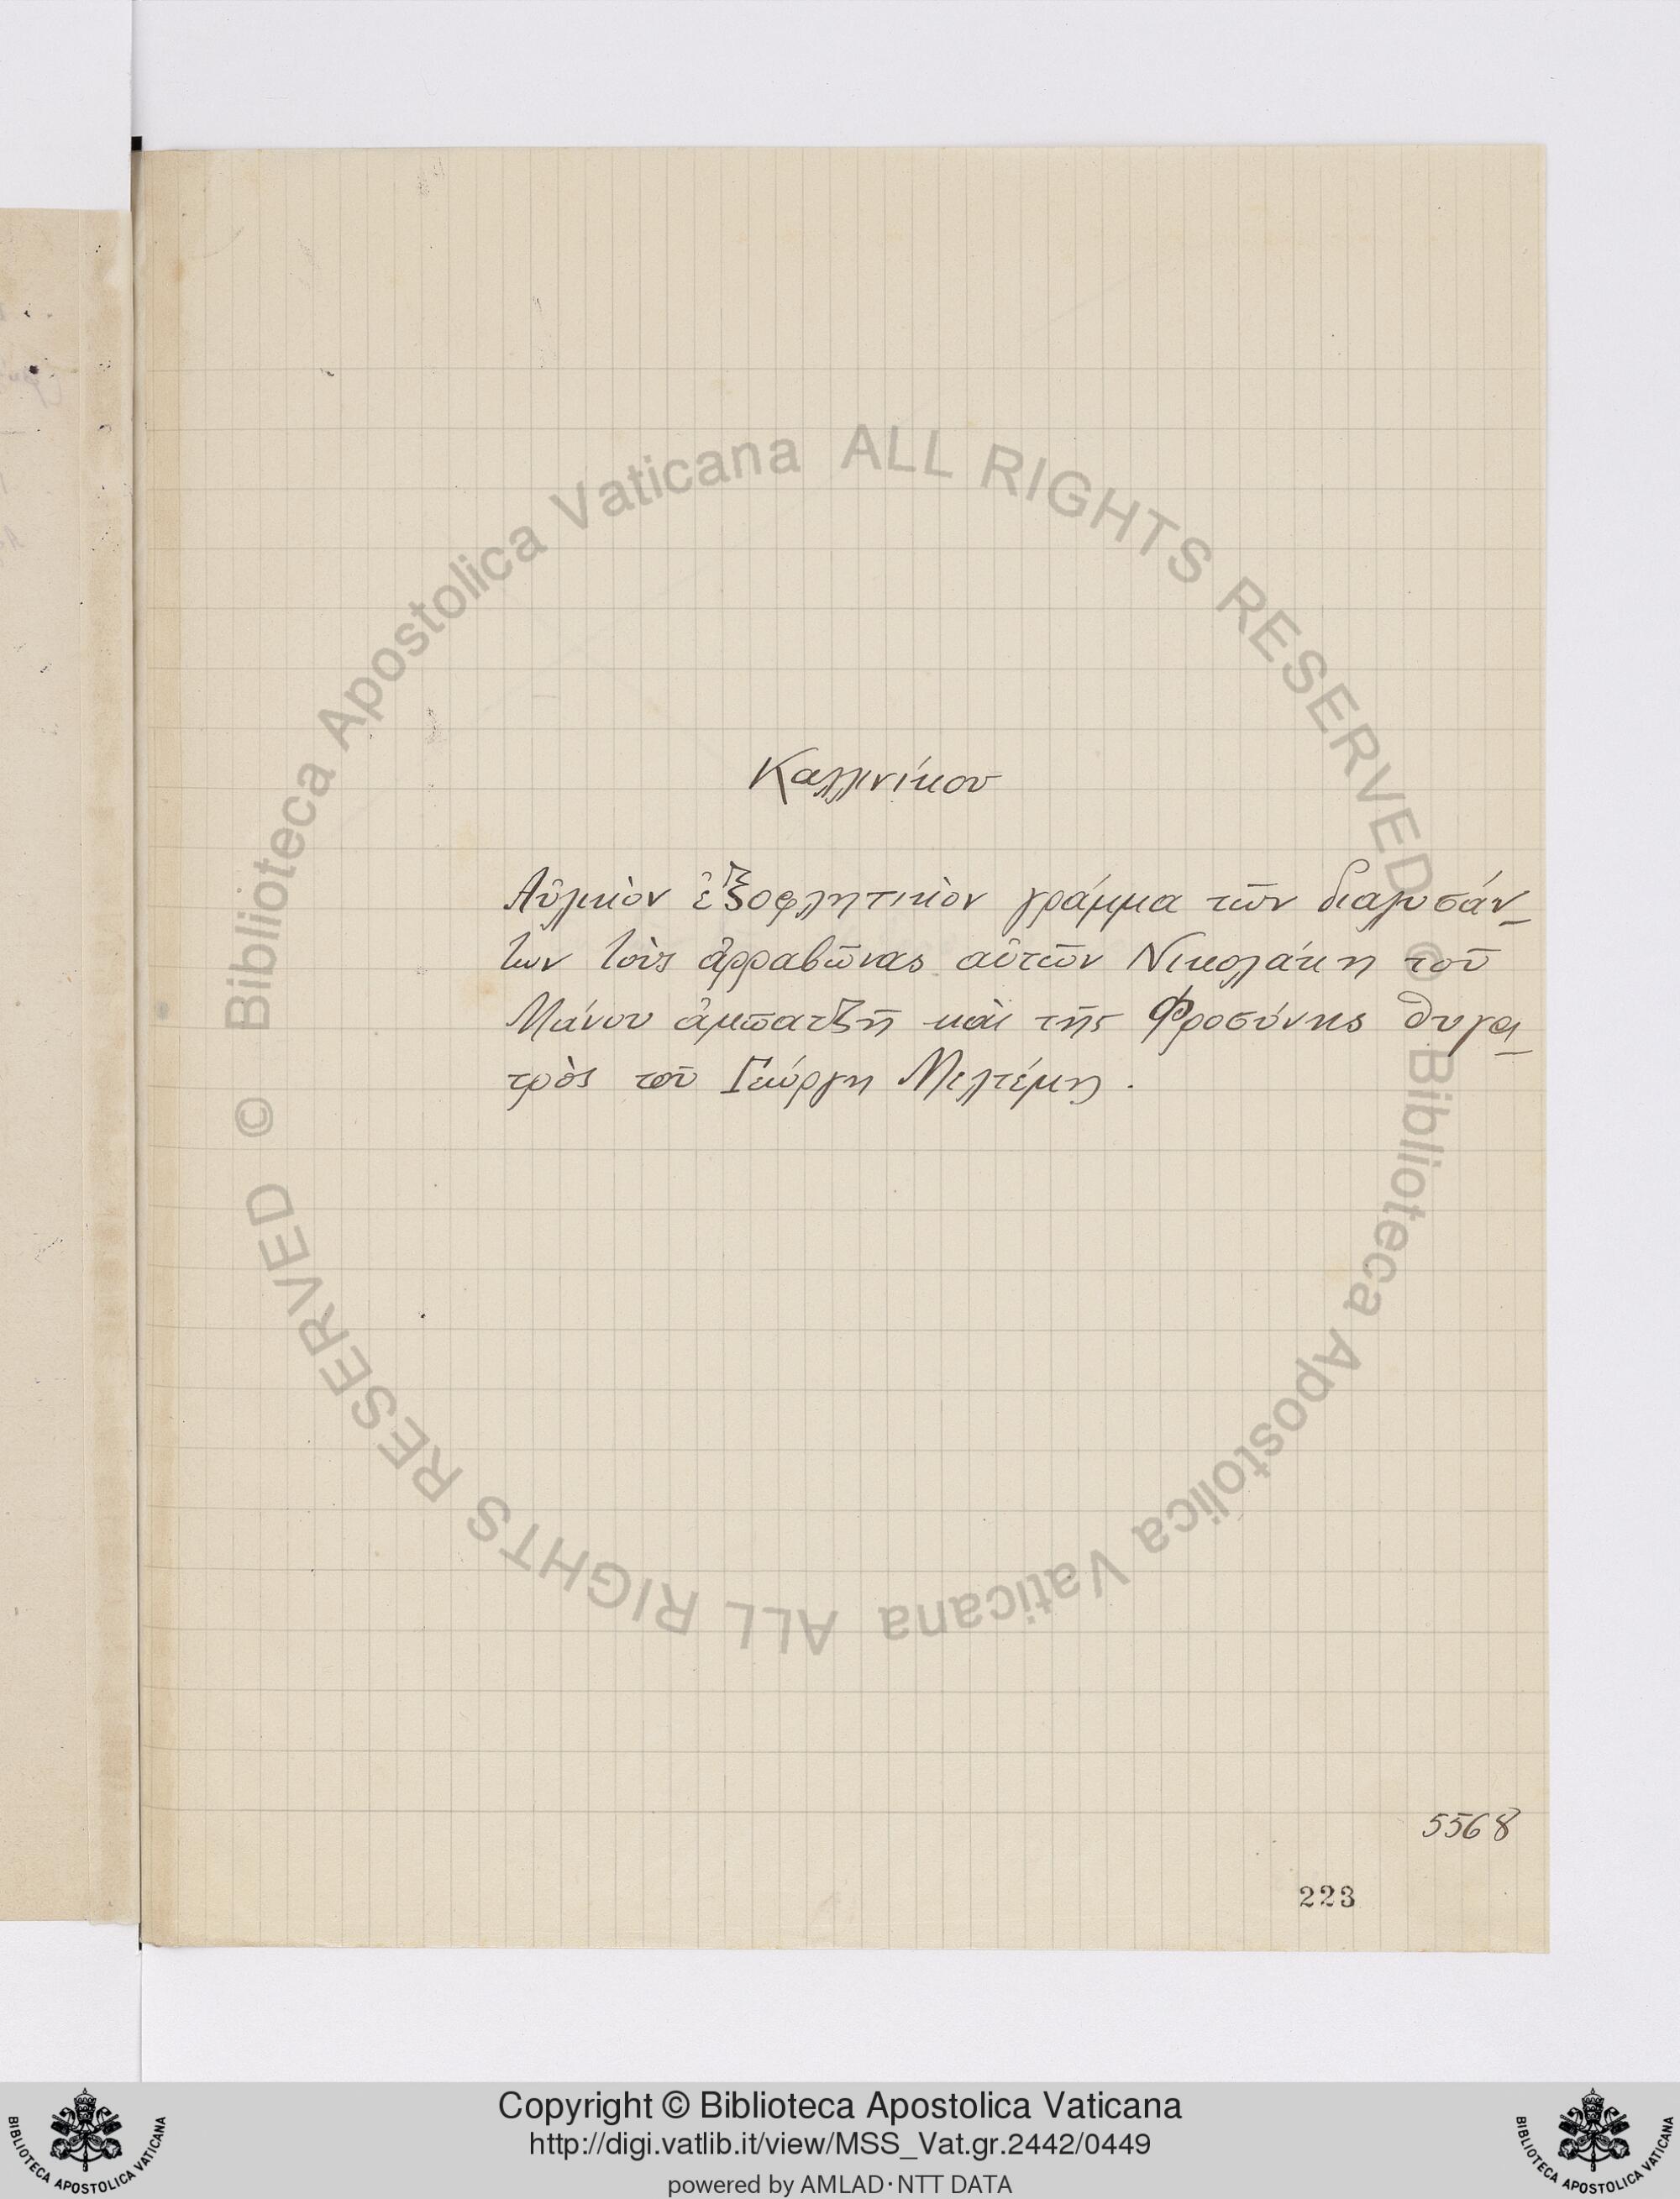 Καλλινίκου
Αὐλικὸν ἐξοφλητικὸν γράμμα τῶν διαλυσάν-
των τοὺς ἀρραβῶνας αὐτῶν Νικολάκη τοῦ
Μάνου ἀμπατζῆ καὶ τῆς Φροσύνης θυγα-
τρὸς τοῦ Γεώργη Μελτέμη.
5568
223
© Biblioteca Apostolica Vaticana ALL RIGHTS RESERVED
© Biblioteca Apostolica Vaticana ALL RIGHTS RESERVED
Copyright © Biblioteca Apostolica Vaticana
http://digi.vatlib.it/view/MSS_Vat.gr.2442/0449
powered by AMLAD·NTT DATA
BIBLIOTECA APOSTOLICA VATICANA
BIBLIOTECA APOSTOLICA VATICANA